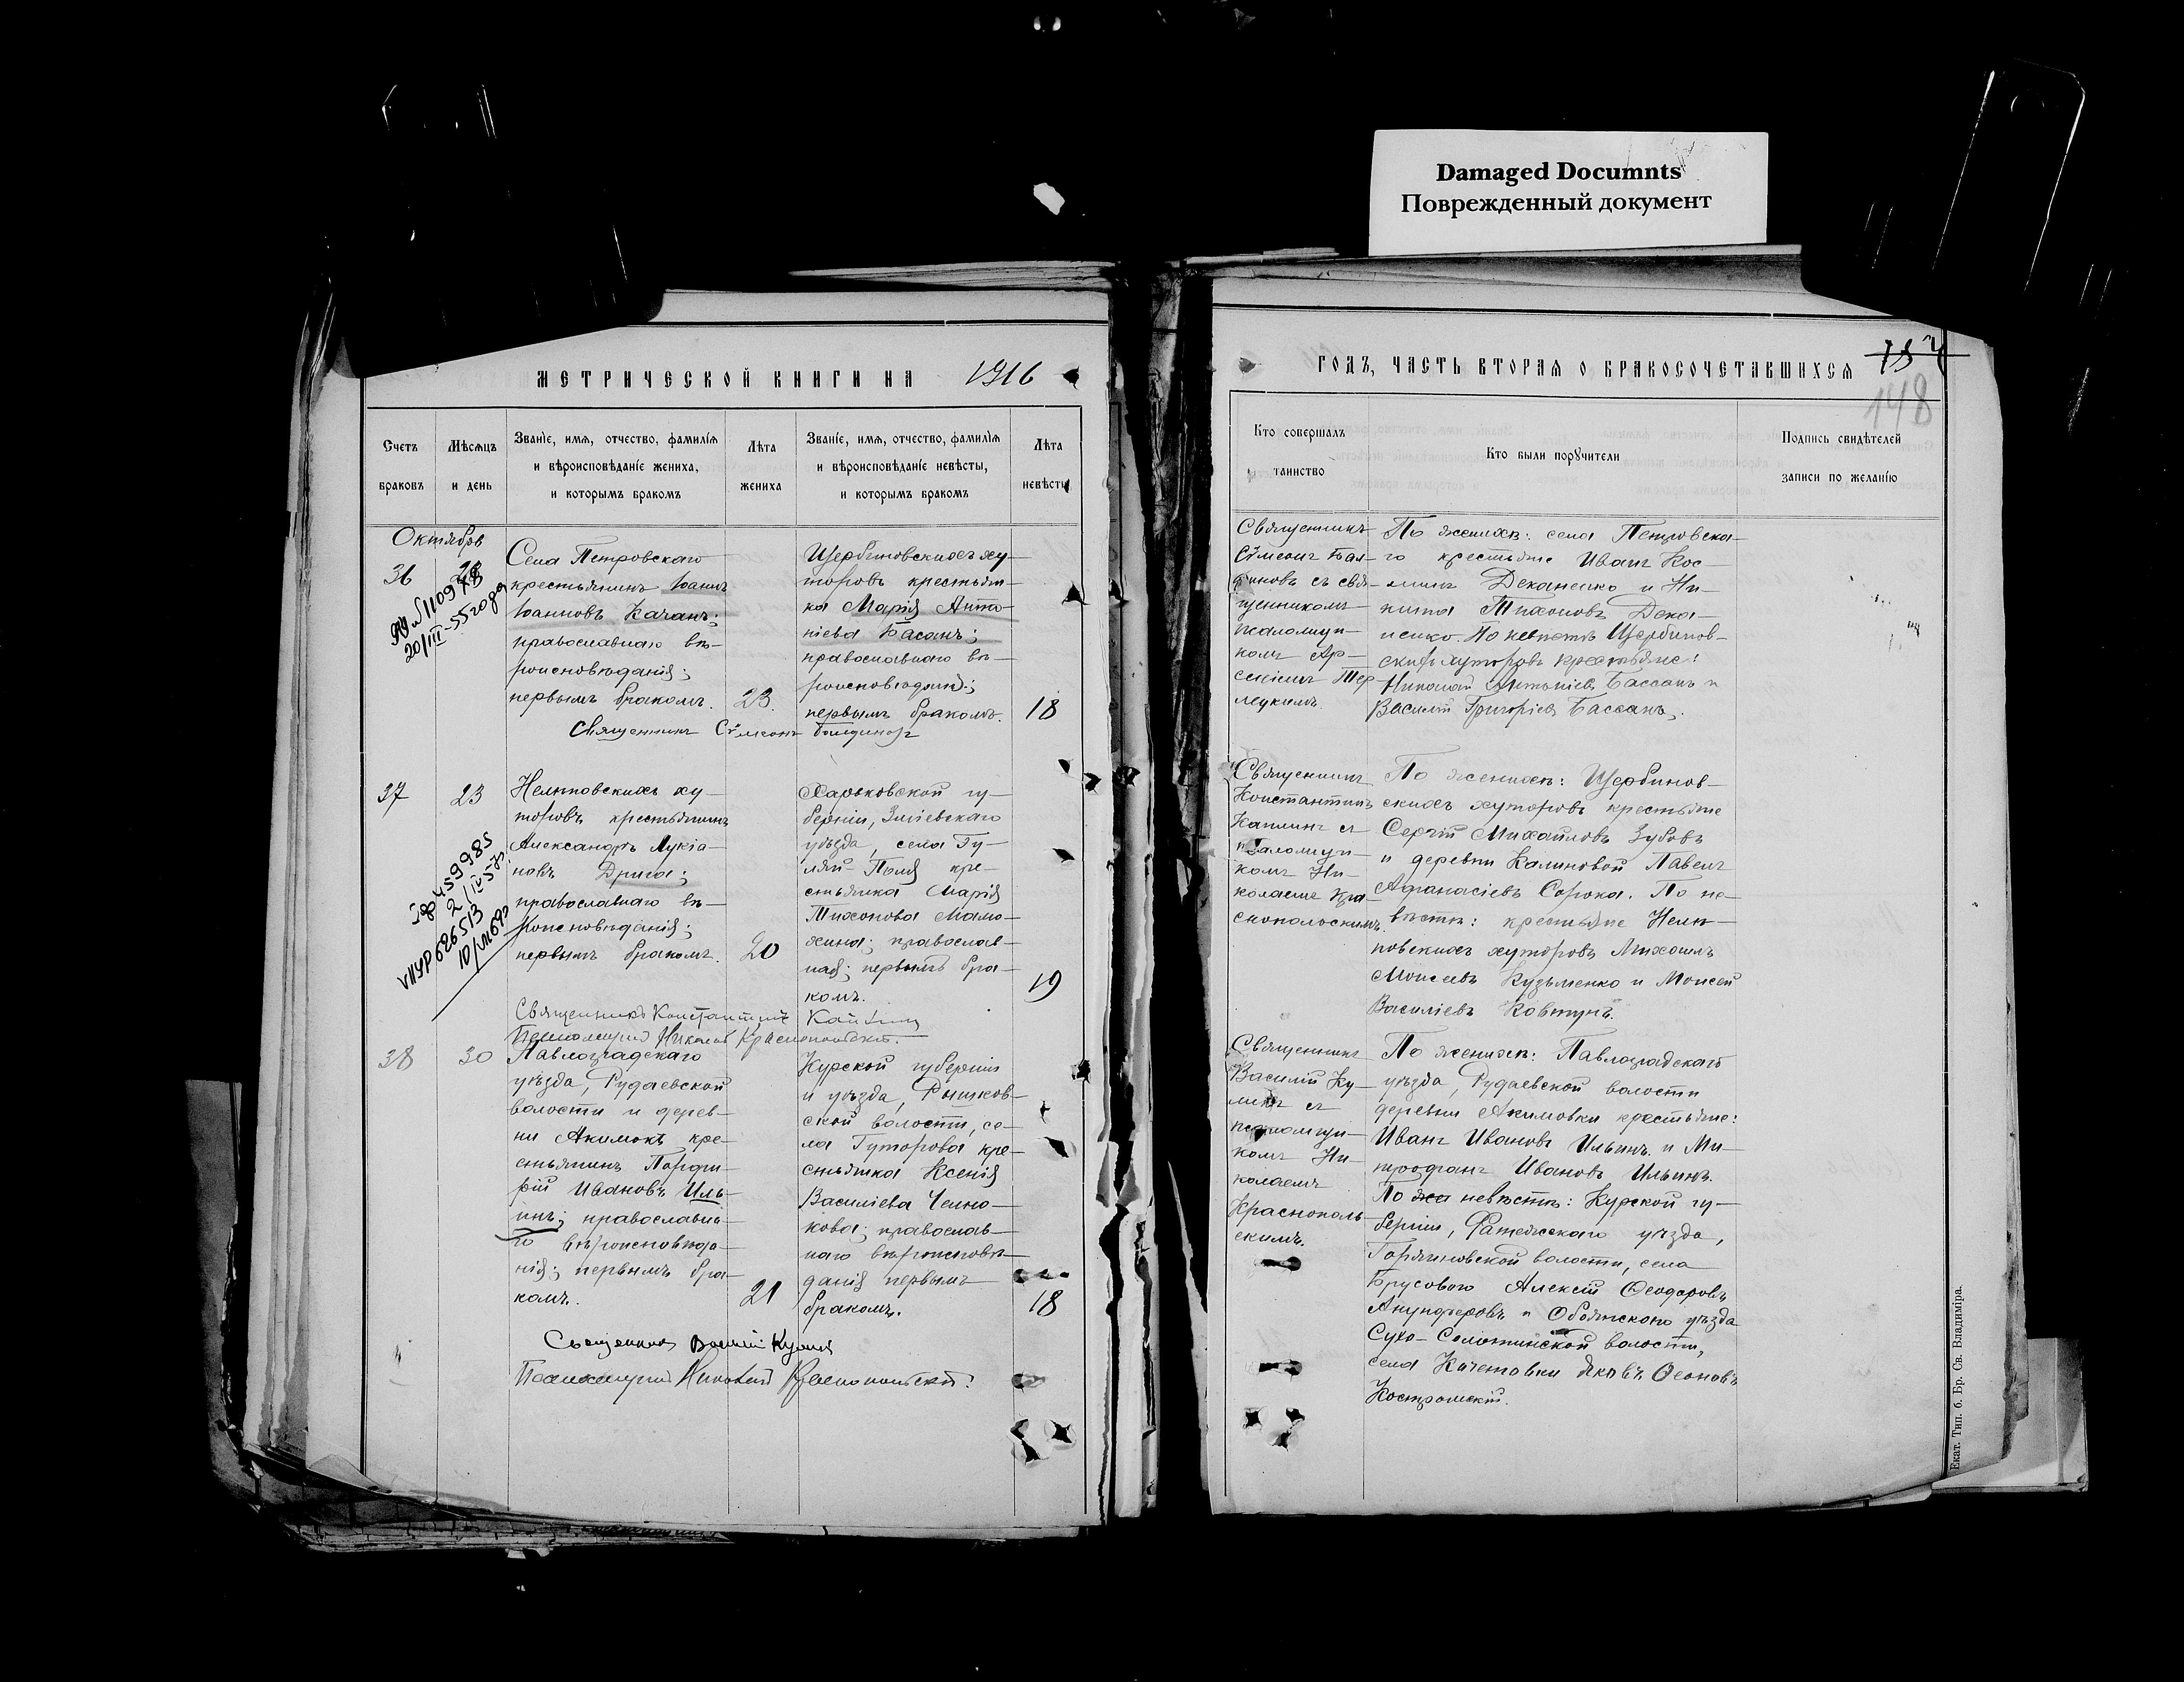 Damaged Documnts
Поврежденный документ
МЕТРИЧЕСКОЙ КНИГИ НА 1916
Счетъ браковъ
Мѣсяцъ и день
Званіе, имя, отчество, фамилія и вѣроисповѣданіе жениха, и которымъ бракомъ
Лѣта жениха
Званіе, имя, отчество, фамилія и вѣроисповѣданіе невѣсты, и которымъ бракомъ
Лѣта невѣсты
Октябрь
36
20/III-55 года
Села Петровскаго
крестьянинъ Іоаннъ
Іоанновъ Качанъ;
православнаго вѣ-
роисповѣданія;
первымъ бракомъ.
23.
Щербиновскихъ ху-
торовъ крестьян-
ка Марія Анто-
ніева Басанъ;
православнаго вѣ-
роисповѣданія;
первымъ бракомъ.
18
Священникъ Сѵмеонъ
37
23
459985
626513
Нелѣповскихъ ху-
торовъ крестьянинъ
Александръ Лукіа-
новъ Дрига;
православнаго вѣ-
роисповѣданія;
первымъ бракомъ.
20
Харьковской гу-
берніи, Зміевскаго
уѣзда, села Гу-
ляй-Поля кре-
стьянка Марія
Тихонова Мамо-
хина; православ-
ная; первымъ бра-
комъ.
19
Священникъ Константинъ Каплинъ
Псаломщикъ Николай Краснопольскій.
38
30
Павлоградскаго
уѣзда, Рудаевской
волости и дерев-
ни Акимовки кре-
стьянинъ Порфи-
рій Ивановъ Иль-
инъ; православна-
го вѣроисповѣда-
нія; первымъ бра-
комъ.
21
Курской губерніи
и уѣзда, Рышков-
ской волости, се-
ла Гуторова кре-
стьянка Ксенія
Василіева Челно-
кова; православ-
наго вѣроисповѣ-
данія первымъ
бракомъ.
18
Священникъ Василій Кулинъ
Псаломщикъ Николай Краснопольскій.
ГОДЪ, ЧАСТЬ ВТОРАЯ О БРАКОСОЧЕТАВШИХСЯ
148
Кто совершалъ таинство
Кто были порꙋчители
Подпись свидѣтелей записи по желанію
Священникъ
Сѵмеонъ
съ свя-
щенникомъ
псаломщи-
комъ Ар-
сеніемъ
По женихѣ: села Петровска-
го крестьяне Иванъ Кос-
минъ Деканенко и Ни-
кита Тихоновъ Дека-
ненко. По невѣстѣ Щербинов-
скихъ хуторовъ крестьяне:
Николай Антоніевъ Бассанъ и
Василій Григоріевъ Бассанъ.
Священникъ
Константинъ
Каплинъ съ
псаломщи-
комъ Ни-
колаемъ Кра-
снопольскимъ.
По женихѣ: Щербинов-
скихъ хуторовъ крестьяне
Сергій Михайловъ Зубовъ
и деревни Калиновой Павелъ
Афанасіевъ Сорока. По не-
вѣстѣ: крестьяне Нелѣ-
повскихъ хуторовъ Михаилъ
Моисеевъ Кузьменко и Моисей
Василіевъ Ковтунъ.
Священникъ
Василій Ку-
линъ съ
псаломщи-
комъ Ни-
колаемъ
Краснополь-
скимъ.
По женихѣ: Павлоградскаго
уѣзда, Рудаевской волости
деревни Акимовки крестьяне:
Иванъ Ивановъ Ильинъ и Ми-
трофанъ Ивановъ Ильинъ.
По невѣстѣ: Курской гу-
берніи, Фатежскаго уѣзда,
волости, села
Брусового Алексій Ѳеодоровъ
Анунфреровъ и Обоянскаго уѣзда
Сухо-Солотинской волости,
села Кочетовки Яковъ
Костромскій.
Екат. Тип. б. Бр. Св. Владиміра.